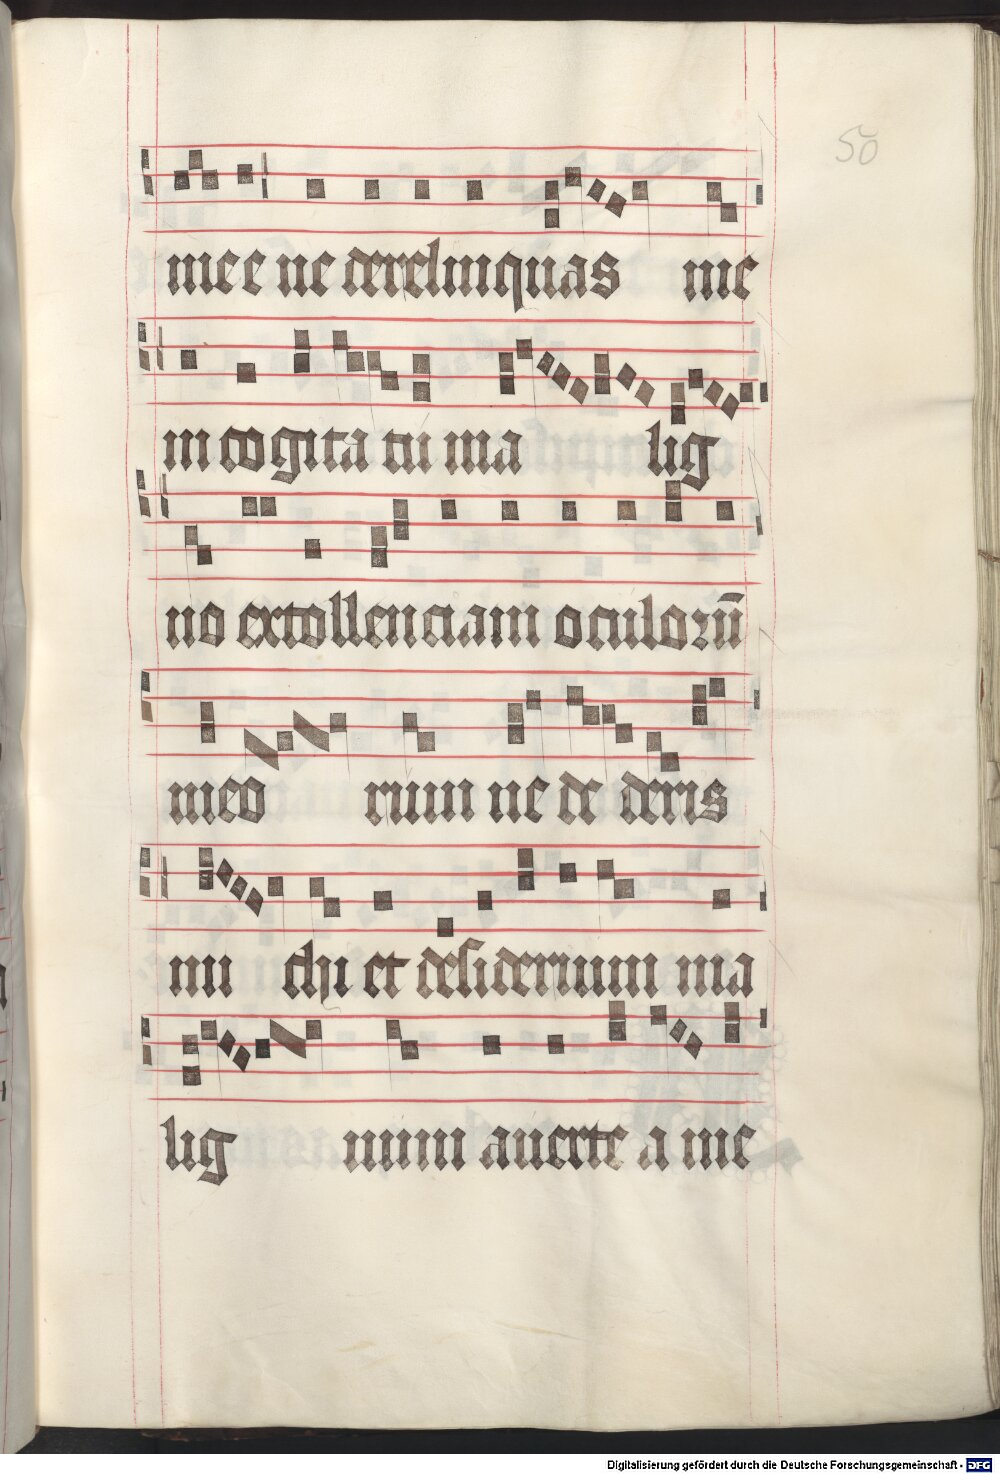 50
mee ne derelinquas me
in cogita tu ma lig
no extollenciam oculorū
meo rum ne de deris
mi chi et desiderium ma
lig num auerte a me
Digitalisierung gefördert durch die Deutsche Forschungsgemeinschaft - DFG